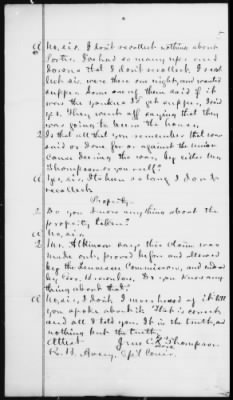 A No, sir. I don't recollect nothing about
Porter. I've had so many ups and
downs that I don't recollect.
sir. were there one night, and wanted
supper. Some one of them said if it
was the yankees I'd get supper. I said
yes. They went off saying that they
was going to burn the house.
Q Is that all you remember that was
said or done for or against the Union
Cause during the war, by either Mr.
Thompson or yourself?
A Yes, sir. It's been so long I don't
recollect.
Property.
Q Do you know anything about the
property taken?
A No, sir.
Q Mr. Atkinson says this claim was
made out, proved before and allowed
by the Tennessee Commissioners, and
by Gov. Do you know any
thing about that?
A No, sir, I don't. I never heard of it till
you spoke about it. That is correct
and all I told you. It is the truth, and
nothing but the truth.
Attest Thompson
R. B. Avery, Sp'l Comr.